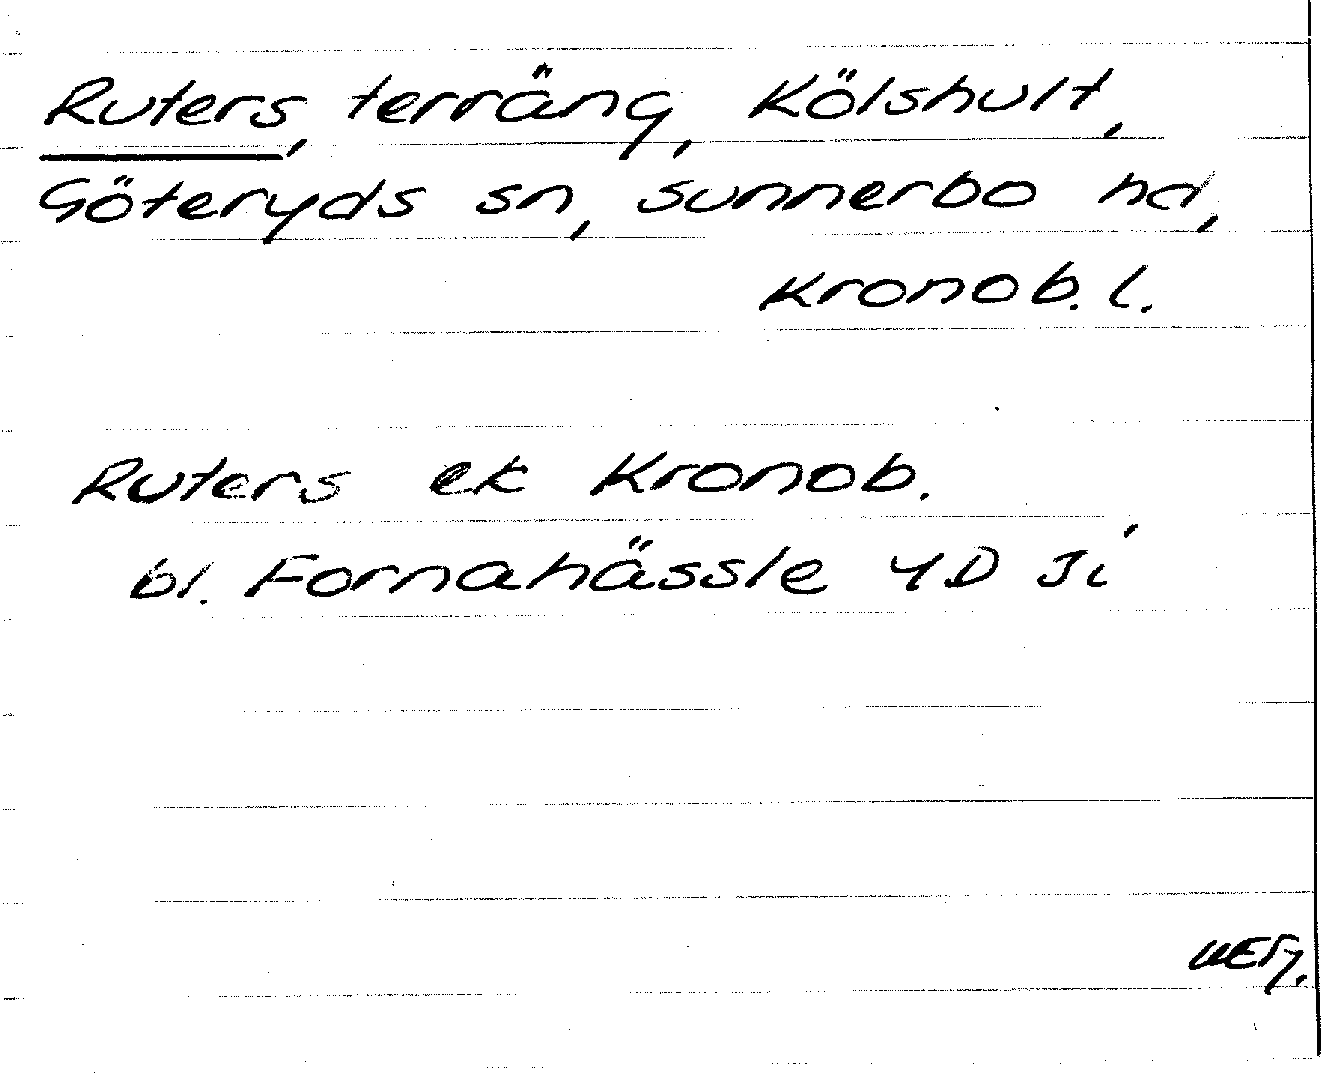 Ruters, terräng, Kölshult,
Göteryds sn, Sunnerbo hd,
Kronob. l.
Ruters ek Kronob.
bl. Fornahässle 4D Ji